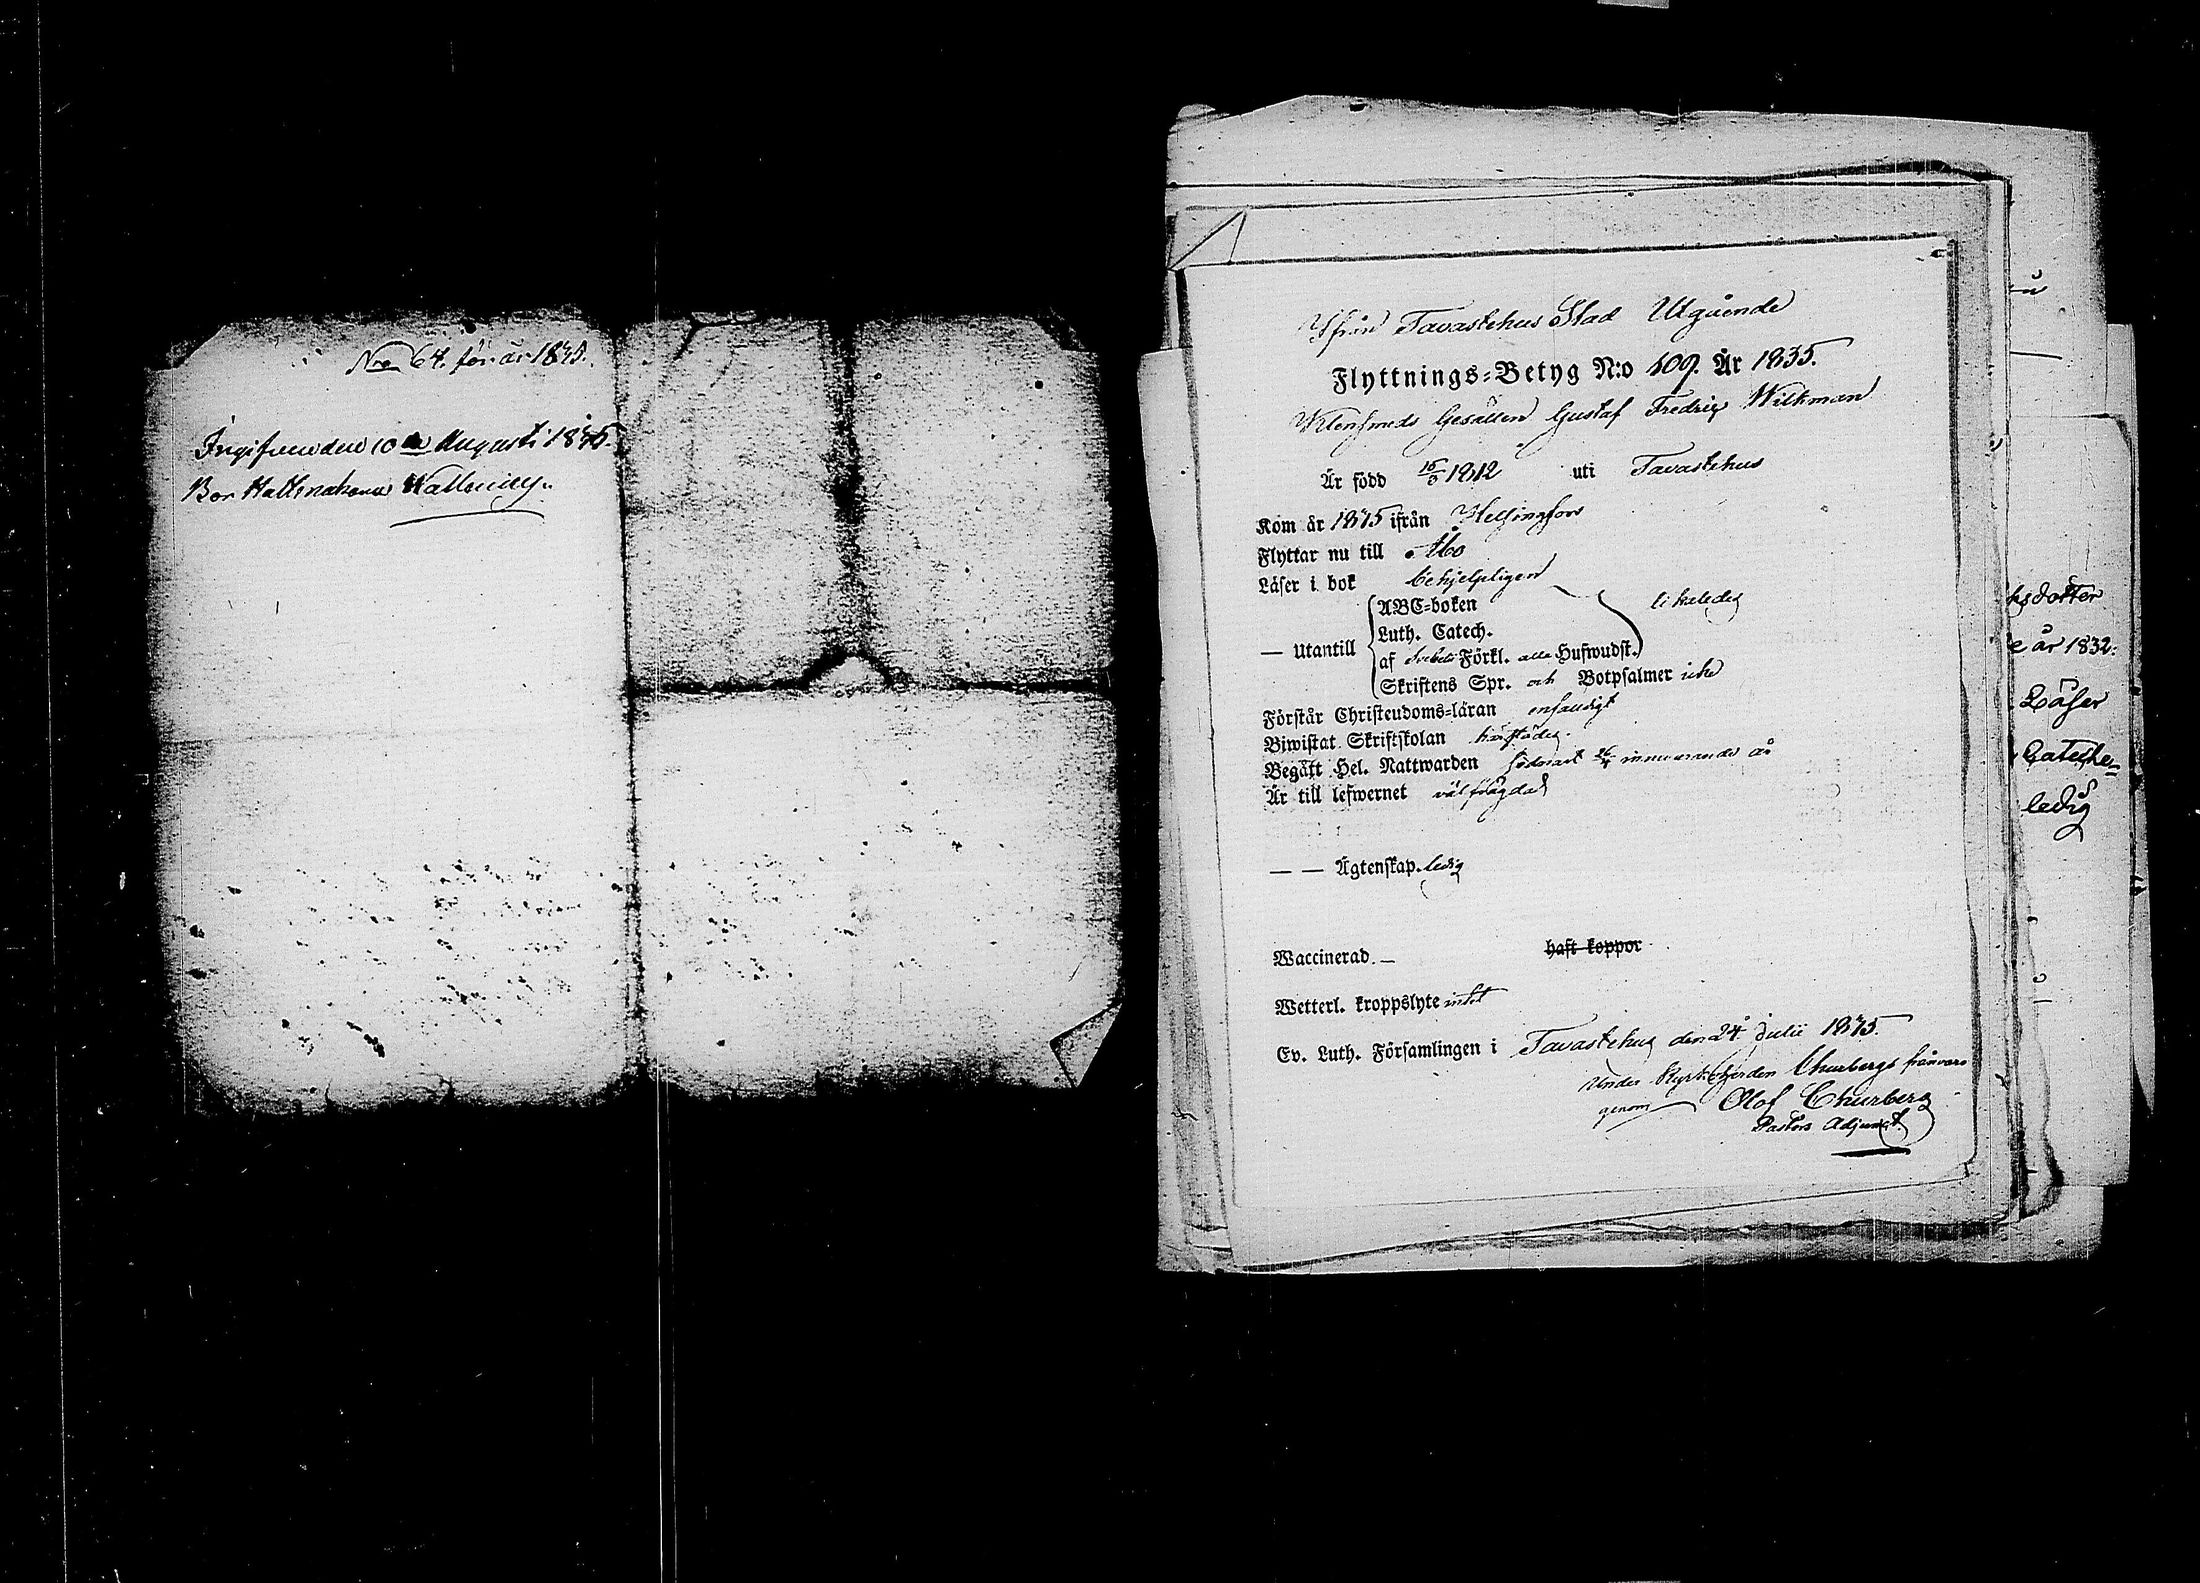 Nro 64. för år 1835.
Ingifven den 10de Augusti 1835.
Bor Hattmakare
Ifrån Tavastehus Stad Utgående
Flyttnings-Betyg N:o 109. År 1835.
Gesällen Gustaf Fredric Wilkman
Är född 1812 uti Tavastehus
Kom år 1835 ifrån Helsingfors
Flyttar nu till Åbo
Läser i bok behjelpligen
— Utantill
ABC-boken
Luth. Catech.
af Svebelii Förkl. alla Hufwudst.
Skriftens Spr. och Botpsalmer icke
likaledes
Förstår Christendoms-läran enfaldigt
Biwistat Skriftskolan härstädes.
Begått Hel. Nattwarden sednast innevarande år
Är till lefwernet välfrägdad
— — Ägtenskap. ledig
Waccinerad. — haft koppor
Wetterl. kroppslyte intet
Ev. Luth. Församlingen i Tavastehus den 24 Julii 1835.
Under Kyrkoherden Churbergs frånvaro
genom Olof Churberg
Pastors Adjunct.
sdotter
år 1832:
Läser
Cateche-
ledig